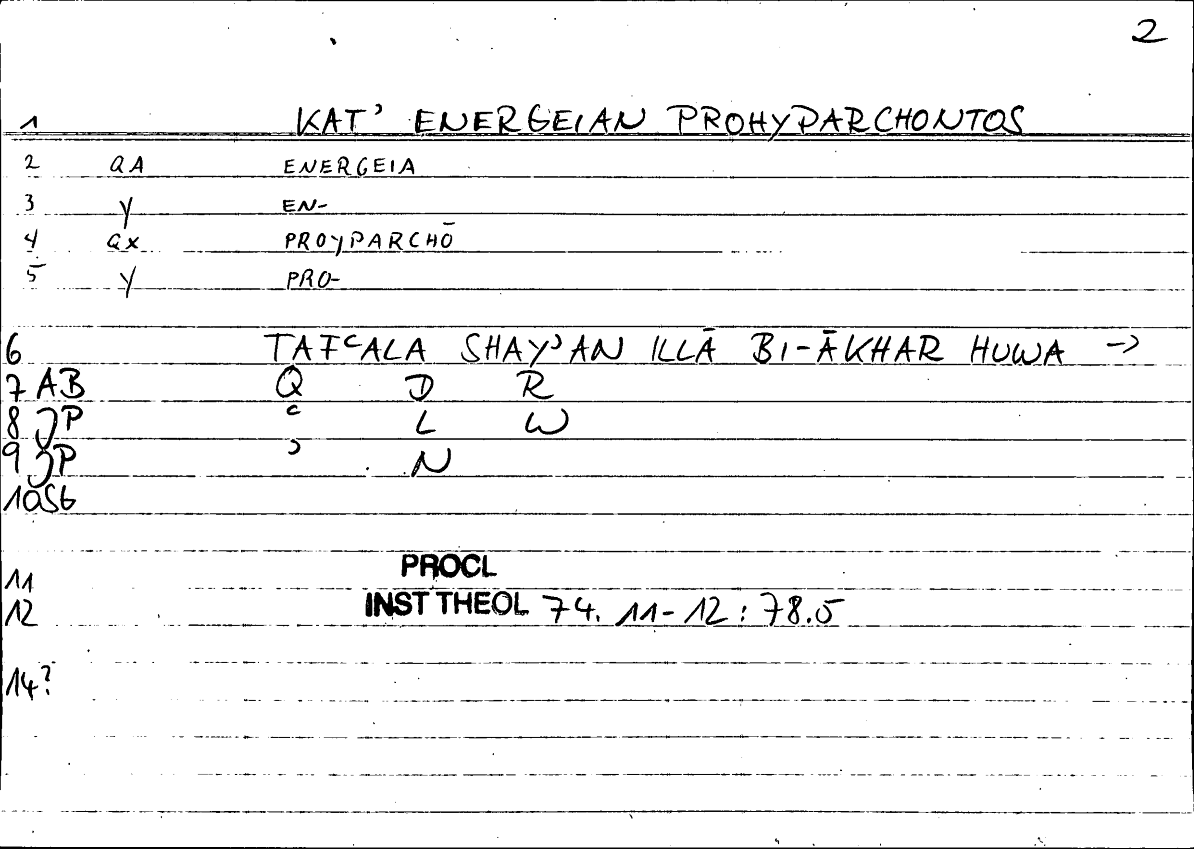 2
1 KAT' ENERGEIAN PROHYPARCHONTOS
2 QA ENERGEIA
3 Y EN-
4 QX PROYPARCHŌ
5 Y PRO-
6 TAFʿALA SHAYʾAN ILLĀ BI-ĀKHAR HUWA →
7 AB Q D R
8 JP ʿ L W
9 JP ʾ N
10 QSt
11 PROCL
12 INST THEOL 74. 11-12 : 78.5
14?